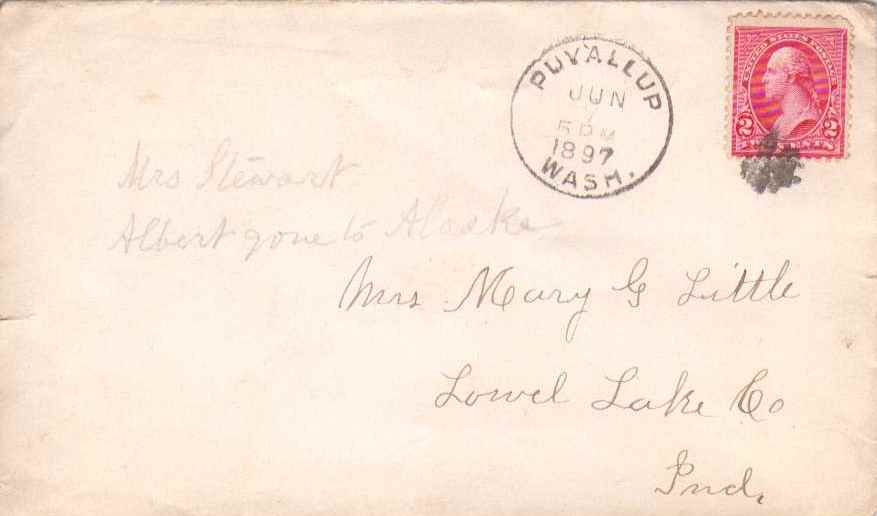 PUYALLUP
JUN
7
5 PM
1897
WASH.
UNITED STATES POSTAGE
2 2
TWO CENTS
Mrs Stewart
Albert gone to Alaska
Mrs Mary G Little
Lowel Lake Co
Ind.